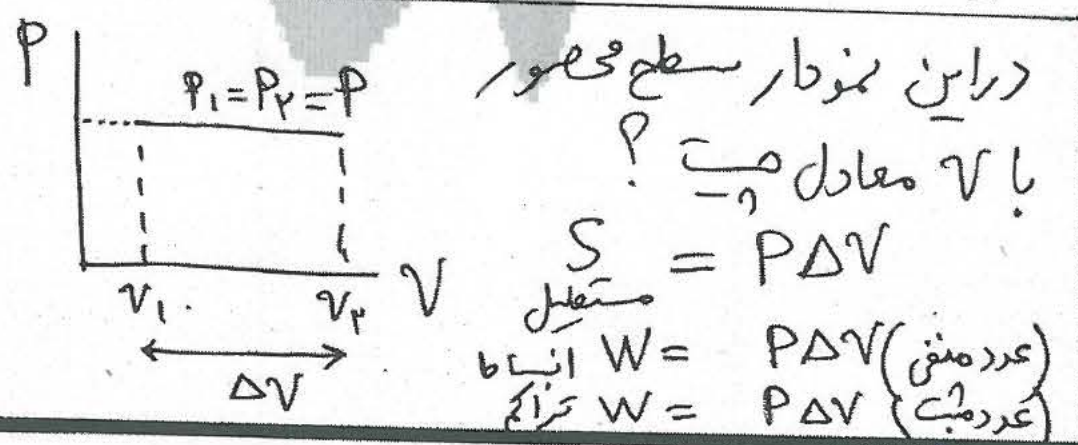 P
P₁ = P₂ = P
V₁
V₂
V
ΔV
در این نمودار سطح محصور
با V معادل چیست ؟
S مستطیل = PΔV
انبساط W = PΔV (عدد منفی)
تراکم W = PΔV (عدد مثبت)